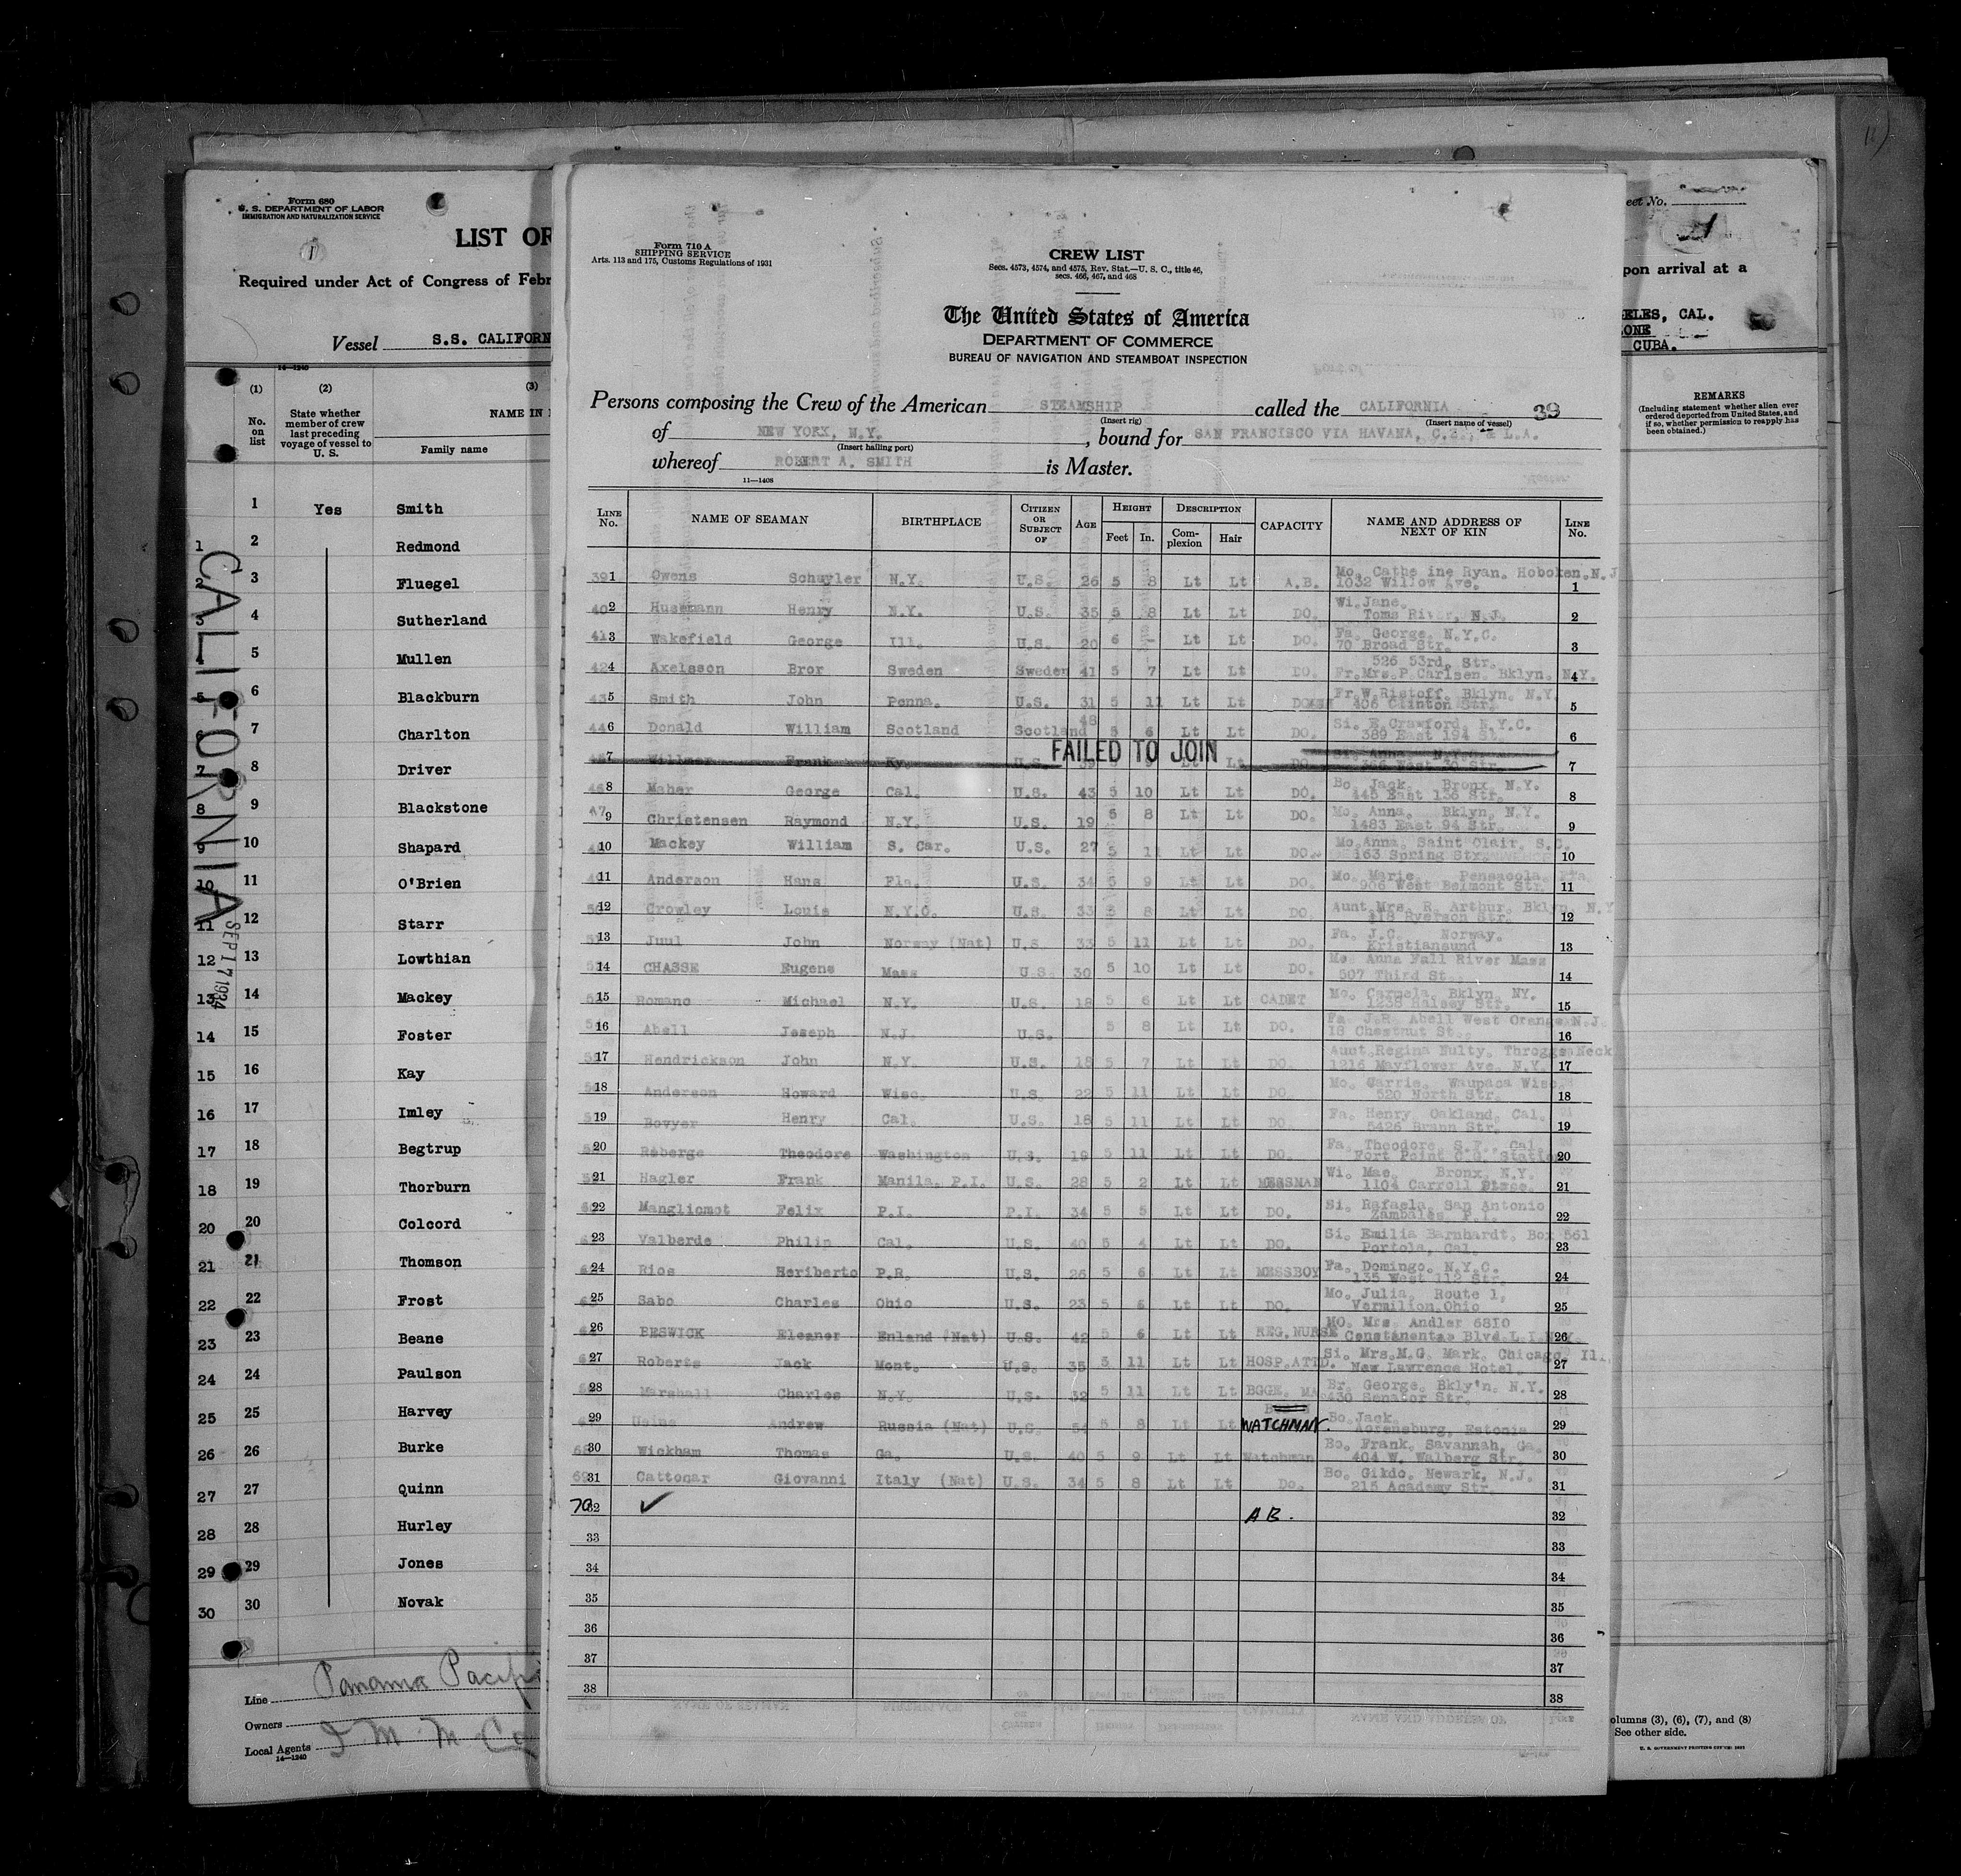 Form 680
U. S. DEPARTMENT OF LABOR
IMMIGRATION AND NATURALIZATION SERVICE
1
LIST OR
Required under Act of Congress of Febr
Vessel S.S. CALIFORN
14—1240
(1) (2) (3)
No. on list
State whether member of crew last preceding voyage of vessel to U. S.
NAME IN
Family name
1 Yes Smith
1 2 Redmond
2 3 Fluegel
3 4 Sutherland
4 5 Mullen
5 6 Blackburn
6 7 Charlton
7 8 Driver
8 9 Blackstone
9 10 Shapard
10 11 O'Brien
11 12 Starr
12 13 Lowthian
13 14 Mackey
14 15 Foster
15 16 Kay
16 17 Imley
17 18 Begtrup
18 19 Thorburn
20 20 Colcord
21 21 Thomson
22 22 Frost
23 23 Beane
24 24 Paulson
25 25 Harvey
26 26 Burke
27 27 Quinn
28 28 Hurley
29 29 Jones
30 30 Novak
CALIFORNIA
SEP 17 1934
Line Panama Pacifi
Owners
Local Agents I M M Co
14—1240
Form 710 A
SHIPPING SERVICE
Arts. 113 and 175, Customs Regulations of 1931
CREW LIST
Secs. 4573, 4574, and 4575, Rev. Stat.—U. S. C., title 46,
secs. 466, 467, and 468
The United States of America
DEPARTMENT OF COMMERCE
BUREAU OF NAVIGATION AND STEAMBOAT INSPECTION
Persons composing the Crew of the American STEAMSHIP called the CALIFORNIA 39
(Insert rig) (Insert name of vessel)
of NEW YORK, N.Y. , bound for SAN FRANCISCO VIA HAVANA, C.Z., & L.A.
(Insert hailing port)
whereof ROBERT A. SMITH is Master.
11—1408
LINE No. NAME OF SEAMAN BIRTHPLACE CITIZEN OR SUBJECT OF AGE HEIGHT Feet In. DESCRIPTION Complexion Hair CAPACITY NAME AND ADDRESS OF NEXT OF KIN LINE No.
39 1 Owens Schuyler N.Y. U.S. 26 5 8 Lt Lt A.B. Mo. Cathe ine Ryan. Hoboken.N.J 1032 Willow Ave. 1
40 2 Husmann Henry N.Y. U.S. 35 5 8 Lt Lt DO. Wi.Jane. Toms River, N.J. 2
41 3 Wakefield George Ill. U.S. 20 6 - Lt Lt DO. Fa. George. N.Y.C. 70 Broad Str. 3
42 4 Axelsson Bror Sweden Sweden 41 5 7 Lt Lt DO. 526 53rd. Str. Fr.Mrs.P.Carlsen. Bklyn. N.Y. 4
43 5 Smith John Penna. U.S. 31 5 11 Lt Lt DO Fr.W.Ristoff. Bklyn. N.Y. 406 Clinton Str. 5
44 6 Donald William Scotland Scotland 48 5 6 Lt Lt DO. Si. E.Crawford. N.Y.C. 389 East 194 St. 6
7 Frank Ky. U.S. 39 Lt Lt DO. 7
FAILED TO JOIN
46 8 Maher George Cal. U.S. 43 5 10 Lt Lt DO. Bo. Jack. Bronx. N.Y. 445 East 136 Str. 8
47 9 Christensen Raymond N.Y. U.S. 19 5 8 Lt Lt DO. Mo. Anna. Bklyn. N.Y. 1483 East 94 Str. 9
10 Mackey William S. Car. U.S. 27 5 11 Lt Lt DO. Mo.Anna. Saint Clair. S.C. 163 Spring Str. 10
11 Anderson Hans Fla. U.S. 34 5 9 Lt Lt DO. Mo. Marie. Pensacola. Fla. 906 West Belmont Str. 11
12 Crowley Louis N.Y.C. U.S. 33 5 8 Lt Lt DO. Aunt Mrs. R. Arthur. Bklyn. N.Y 418 Ryerson Str. 12
13 Juul John Norway (Nat) U.S. 33 5 11 Lt Lt DO. Fa. J.C. Norway. Kristiansund 13
14 CHASSE Eugene Mass U.S. 30 5 10 Lt Lt DO. Mo. Anna Fall River Mass 507 Third St. 14
15 Romano Michael N.Y. U.S. 18 5 6 Lt Lt CADET Mo. Carmela. Bklyn. NY. 1238 Halsey Str. 15
16 Abell Joseph N.J. U.S. 5 8 Lt Lt DO. Fa. J.R. Abell West Orange N.J. 18 Chestnut St. 16
17 Hendrickson John N.Y. U.S. 18 5 7 Lt Lt DO. Aunt.Regina Nulty. Throggs Neck 1216 Mayflower Ave. N.Y. 17
18 Anderson Howard Wisc. U.S. 22 5 11 Lt Lt DO Mo. Carrie. Waupaca Wisc. 520 North Str. 18
19 Bovyer Henry Cal. U.S. 18 5 11 Lt Lt DO Fa. Henry. Oakland. Cal. 5426 Brann Str. 19
20 Reberge Theodore Washington U.S. 19 5 11 Lt Lt DO. Fa. Theodore. S.F. Cal. Fort Point C.G. Station 20
21 Hagler Frank Manila. P.I. U.S. 28 5 2 Lt Lt MESSMAN Wi. Mae. Bronx. N.Y. 1104 Carroll Place. 21
22 Manglicmot Felix P.I. P.I. 34 5 5 Lt Lt DO. Si. Rafaela. San Antonio Zambales. P.I. 22
23 Valberde Philip Cal. U.S. 40 5 4 Lt Lt DO. Si. Emilia Barnhardt. Box 561 Portola, Cal. 23
24 Rios Heriberto P.R. U.S. 26 5 6 Lt Lt MESSBOY Fa. Domingo. N.Y.C. 135 West 112 Str. 24
25 Sabo Charles Ohio U.S. 23 5 6 Lt Lt DO. Mo. Julia. Route 1, Vermilion.Ohio 25
26 BESWICK Eleanor Enland (Nat) U.S. 42 5 6 Lt Lt REG.NURSE MO. Mrs. Andler 6810 Blvd.L.I.N.Y. 26
27 Roberts Jack Mont. U.S. 35 5 11 Lt Lt HOSP.ATTD. Si. Mrs.M.G. Mark. Chicago. Ill. New Lawrence Hotel. 27
28 Marshall Charles N.Y. U.S. 32 5 11 Lt Lt BGGE. MA Br. George. Bkly'n. N.Y. 430 Senator Str. 28
29 Andrew Russia (Nat) U.S. 54 5 8 Lt Lt WATCHMAN. Bo.Jack. Estonia 29
68 30 Wickham Thomas Ga. U.S. 40 5 9 Lt Lt Watchman Bo. Frank. Savannah, Ga. 404 W. Walberg Str. 30
69 31 Cattonar Giovanni Italy (Nat) U.S. 34 5 8 Lt Lt Do. Bo. Gildo. Newark, N.J. 215 Academy Str. 31
70 32 ✓ A B. 32
33 33
34 34
35 35
36 36
37 37
38 38
eet No.
1
pon arrival at a
ELES, CAL.
ONE
CUBA.
REMARKS
(Including statement whether alien ever ordered deported from United States, and if so, whether permission to reapply has been obtained.)
olumns (3), (6), (7), and (8)
See other side.
U. S. GOVERNMENT PRINTING OFFICE: 1931
11)